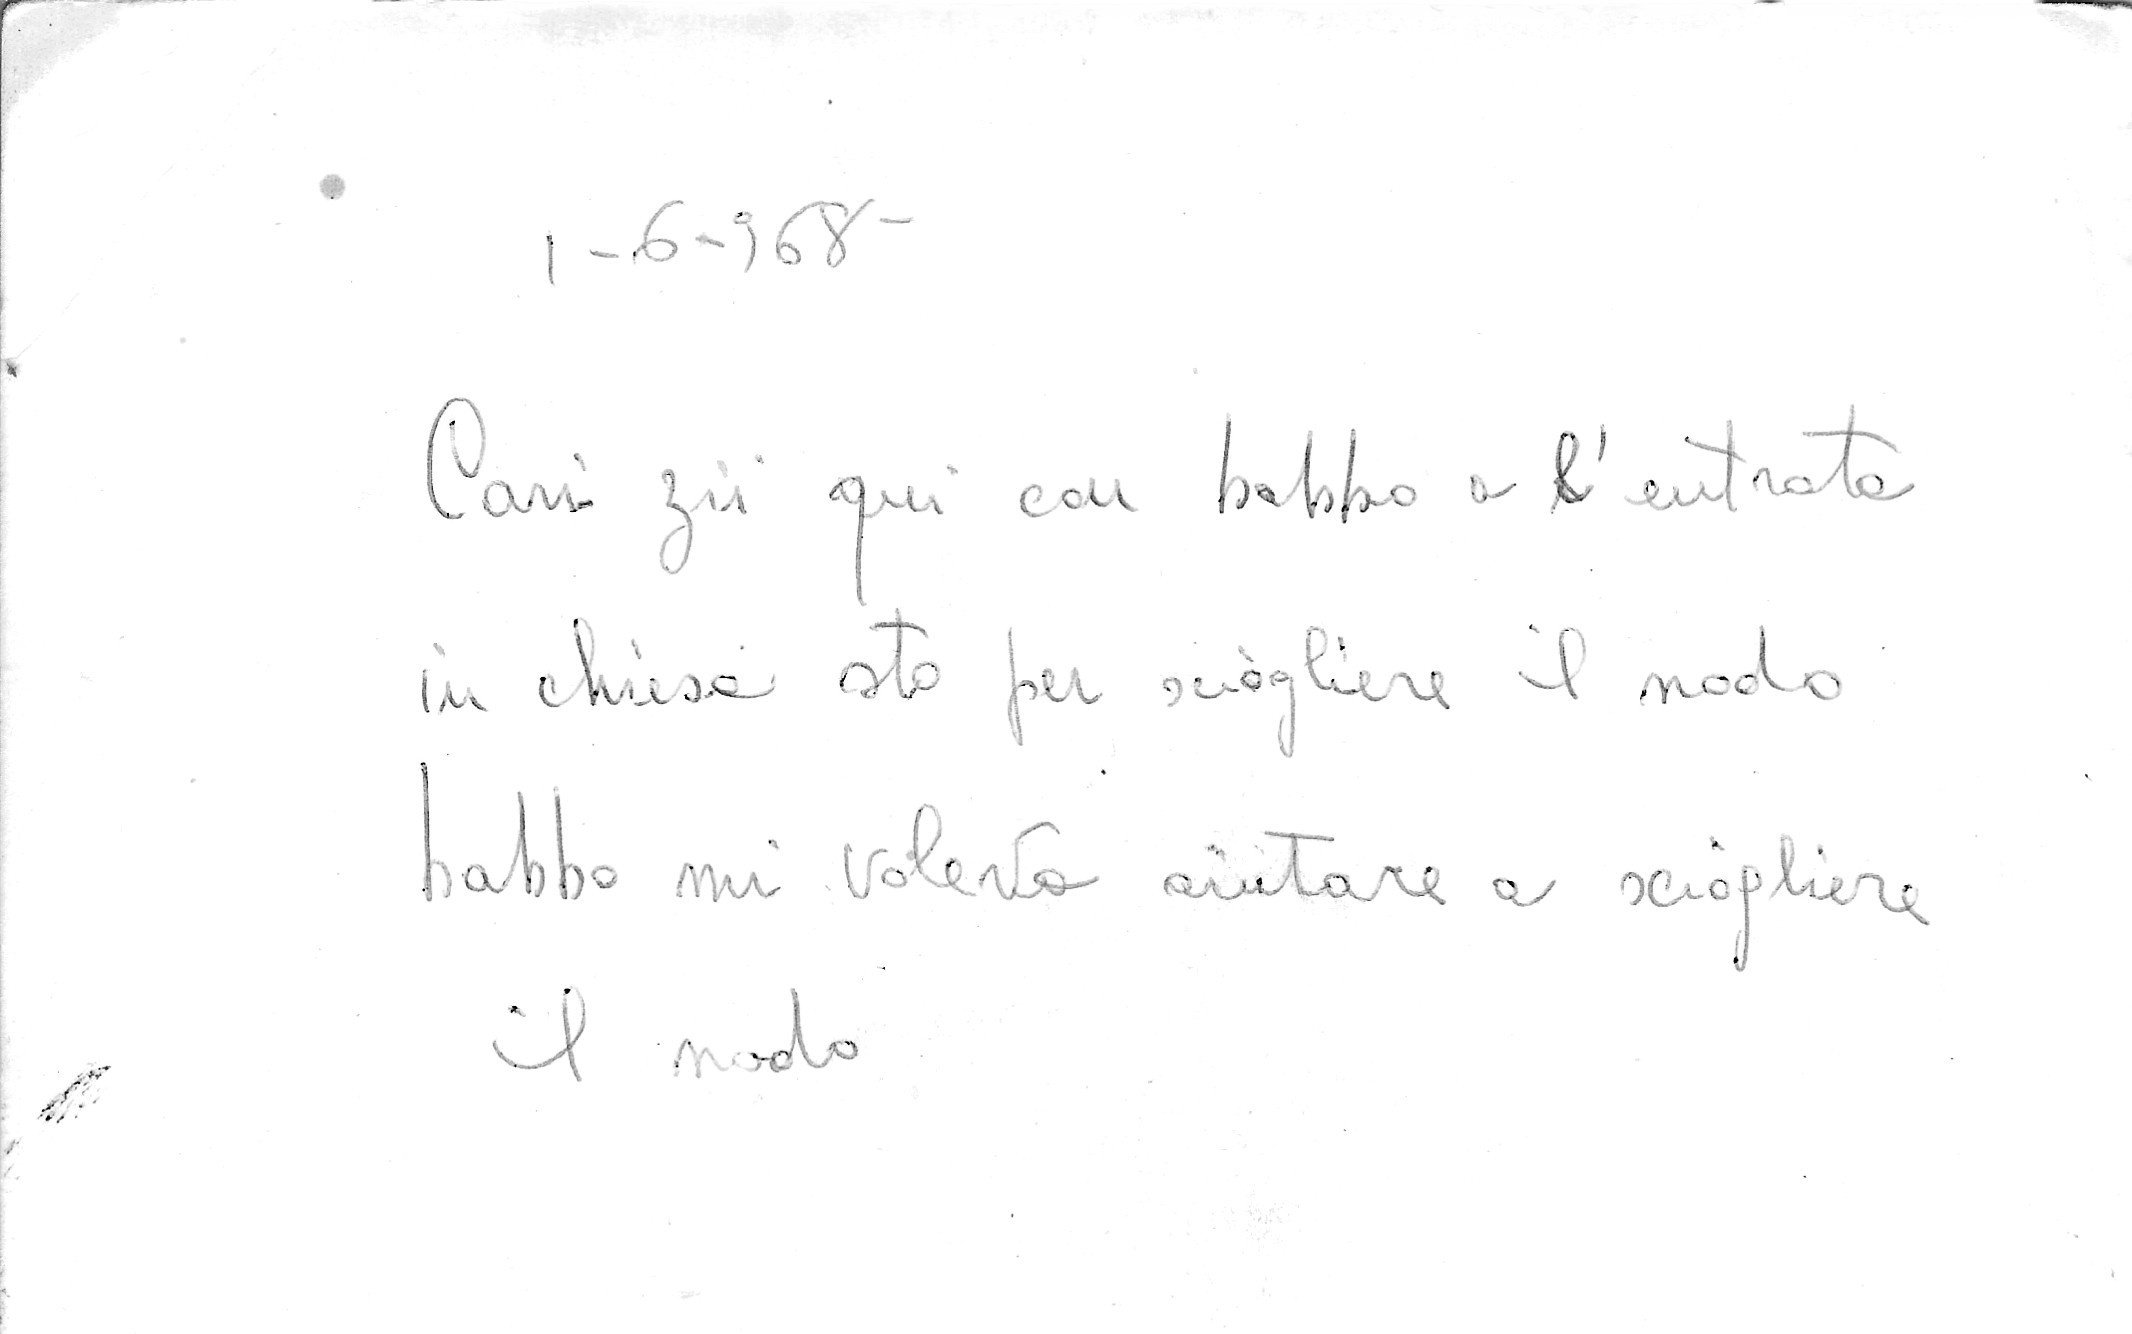 1-6-968-
Cari zii qui con babbo a l'entrata
in chiesa sto per sciogliere il nodo
babbo mi voleva aiutare a sciogliere
il nodo